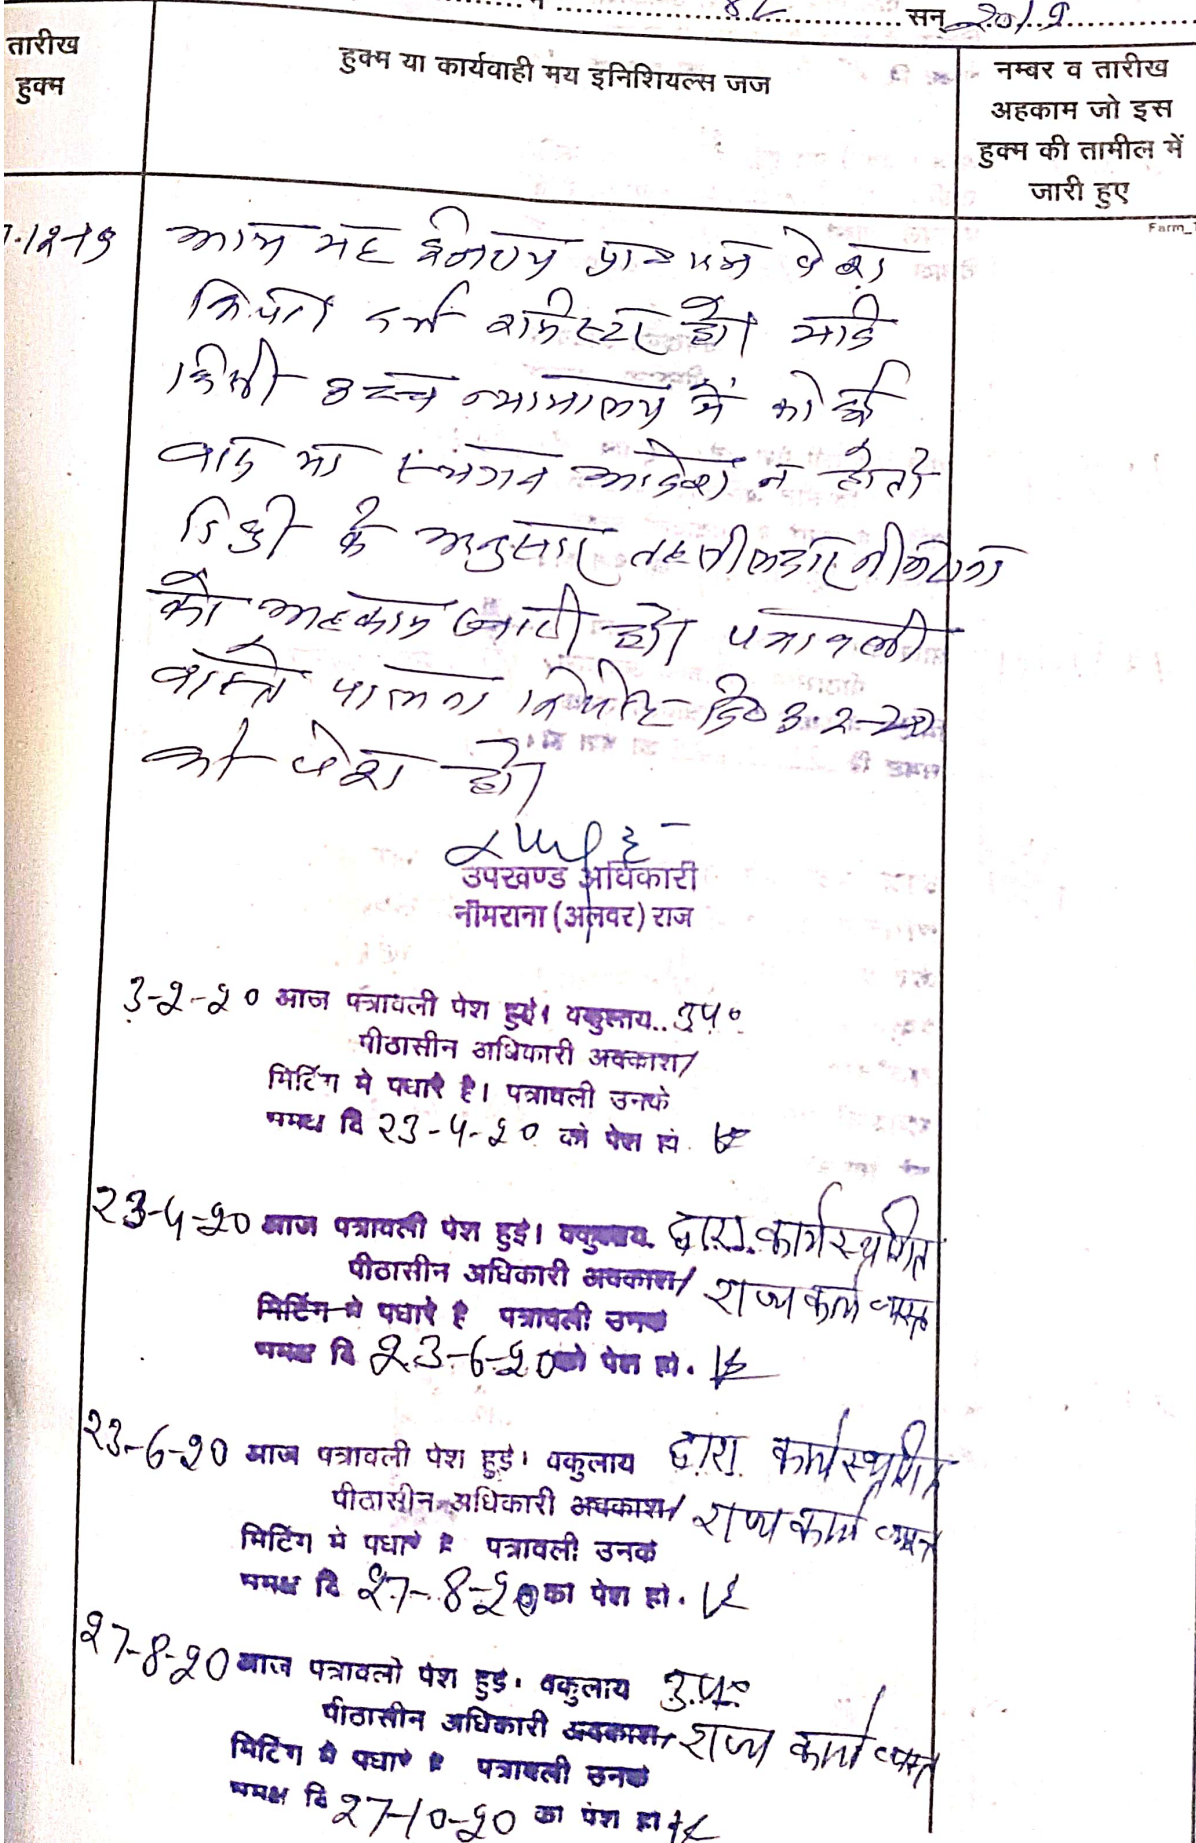 सन् 2019
तारीख
हुक्म
हुक्म या कार्यवाही मय इनिशियल्स जज
नम्बर व तारीख
अहकाम जो इस
हुक्म की तामील में
जारी हुए
12-19 आज यह इजराय प्रा० पत्र पेश
किया दर्ज रजिस्टर हो। यदि
किसी उच्च न्यायालय में कोई
वाद या स्थगन आदेश न हो तो
डिक्री के अनुसार तहसीलदार नीमराना
को अहकाम जारी हो। पत्रावली
वास्ते पालना रिपोर्ट दि० 3-2-20
को पेश हो।
उपखण्ड अधिकारी
नीमराना (अलवर) राज
3-2-20 आज पत्रावली पेश हुई। वकुलाय.. उप०
पीठासीन अधिकारी अवकाश/
मिटिंग मे पधारे है। पत्रावली उनके
समक्ष दि 23-4-20 को पेश हो.
23-4-20 आज पत्रावली पेश हुई। वकुलाय द्वारा कार्य स्थगित
पीठासीन अधिकारी अवकाश/ राज्य कार्य व्यस्त
मिटिंग मे पधारे है पत्रावली उनके
समक्ष दि 23-6-20 को पेश हो.
23-6-20 आज पत्रावली पेश हुई। वकुलाय द्वारा कार्य स्थगित
पीठासीन अधिकारी अवकाश/ राज्य कार्य व्यस्त
मिटिंग मे पधारे है पत्रावली उनके
समक्ष दि 27-8-20 को पेश हो.
27-8-20 आज पत्रावली पेश हुई. वकुलाय उप०
पीठासीन अधिकारी अवकाश/ राज्य कार्य व्यस्त
मिटिंग मे पधारे है पत्रावली उनके
समक्ष दि 27-10-20 को पेश हो